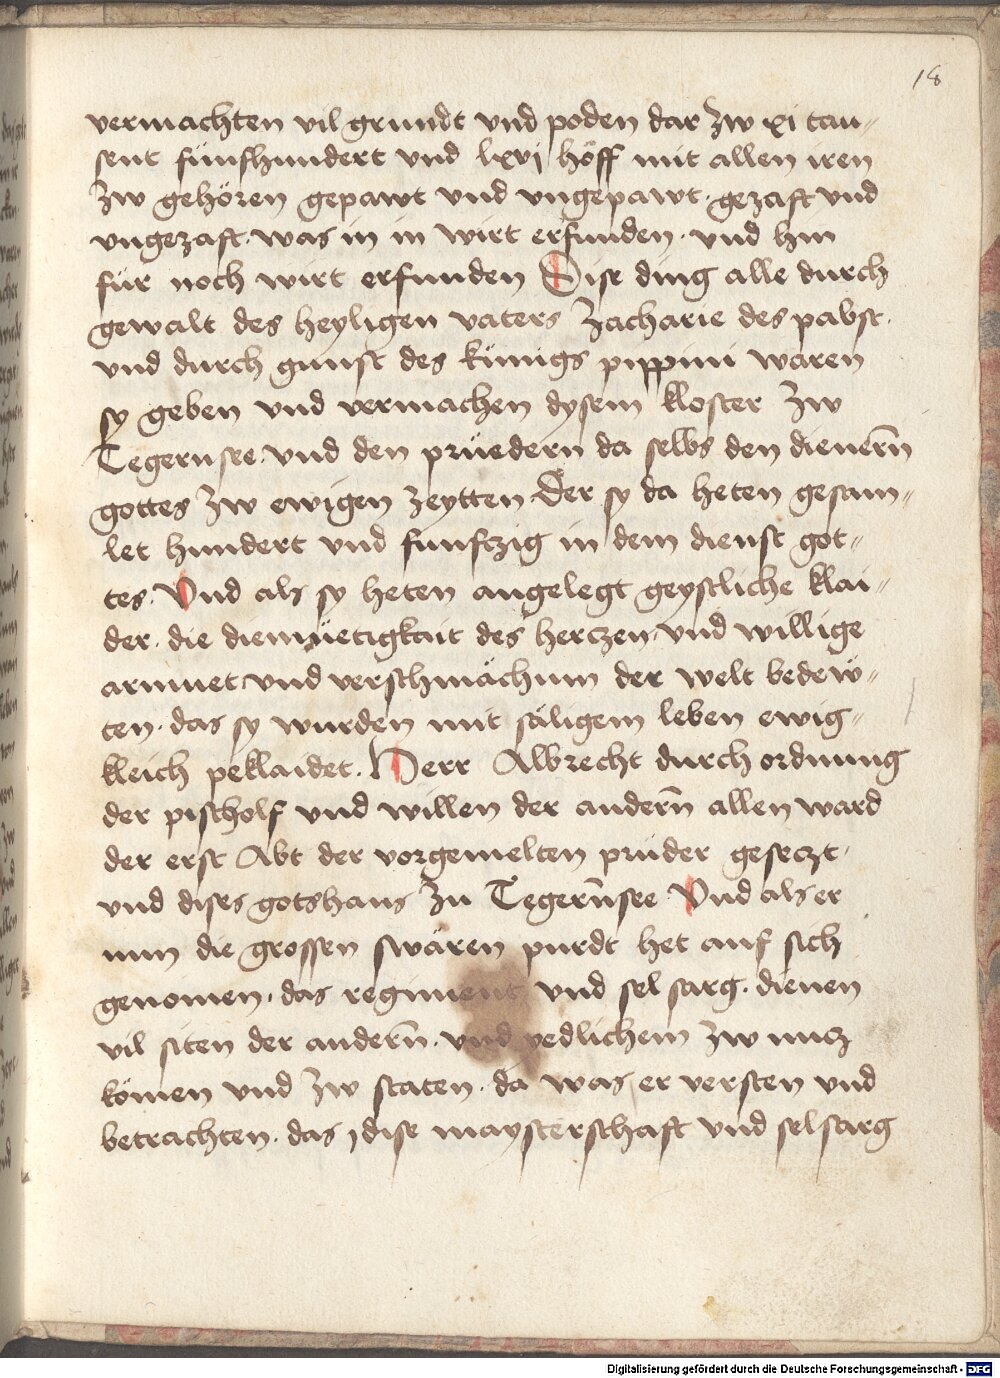 18
vermachten vil grundt vnd poden dar zw xi tau〃
sent fünfhundert vnd lxvj höff mit allen iren
zw gehören gepawt vnd vngepawt · gezaft vnd
vngezaft · was in in wirt erfunden · vnd hin
für noch wirt erfunden Dise ding alle durch
gewalt des heyligen vaters Zacharie des pabst ·
vnd durch gunst des künigs pippini waren
sy geben vnd vermachen dysem kloster zw
Tegernsee · vnd den prüedern da selbs den dienern̄
gottes zw ewigen zeytten Der sy da heten gesam〃
let hundert vnd funfczig in dem dienst got〃
tes · Vnd als sy heten angelegt geystliche klai〃
der · die diemüetigkait des herczen · vnd willige
armuet vnd verschmächum der welt bedew̎〃
ten · das sy wurden mit säligem leben ewig〃
kleich peklaidet · Herr Albrecht durch ordnung
der pischolf vnd willen der andern̄ allen ward
der erst Abt der vorgemelten pruder geseczt ·
vnd dises gotshaus zu Tegern̄see Vnd als er
nun die grossen swären purdt het auf sich
genomen · das regiment vnd sel sarg · dienen
vil siten der andern̄ · vnd yedlichem zw nucz
kömen vnd zw staten · da was er versten vnd
betrachten · das dise maysterschaft vnd selsarg
Digitalisierung gefördert durch die Deutsche Forschungsgemeinschaft - DFG